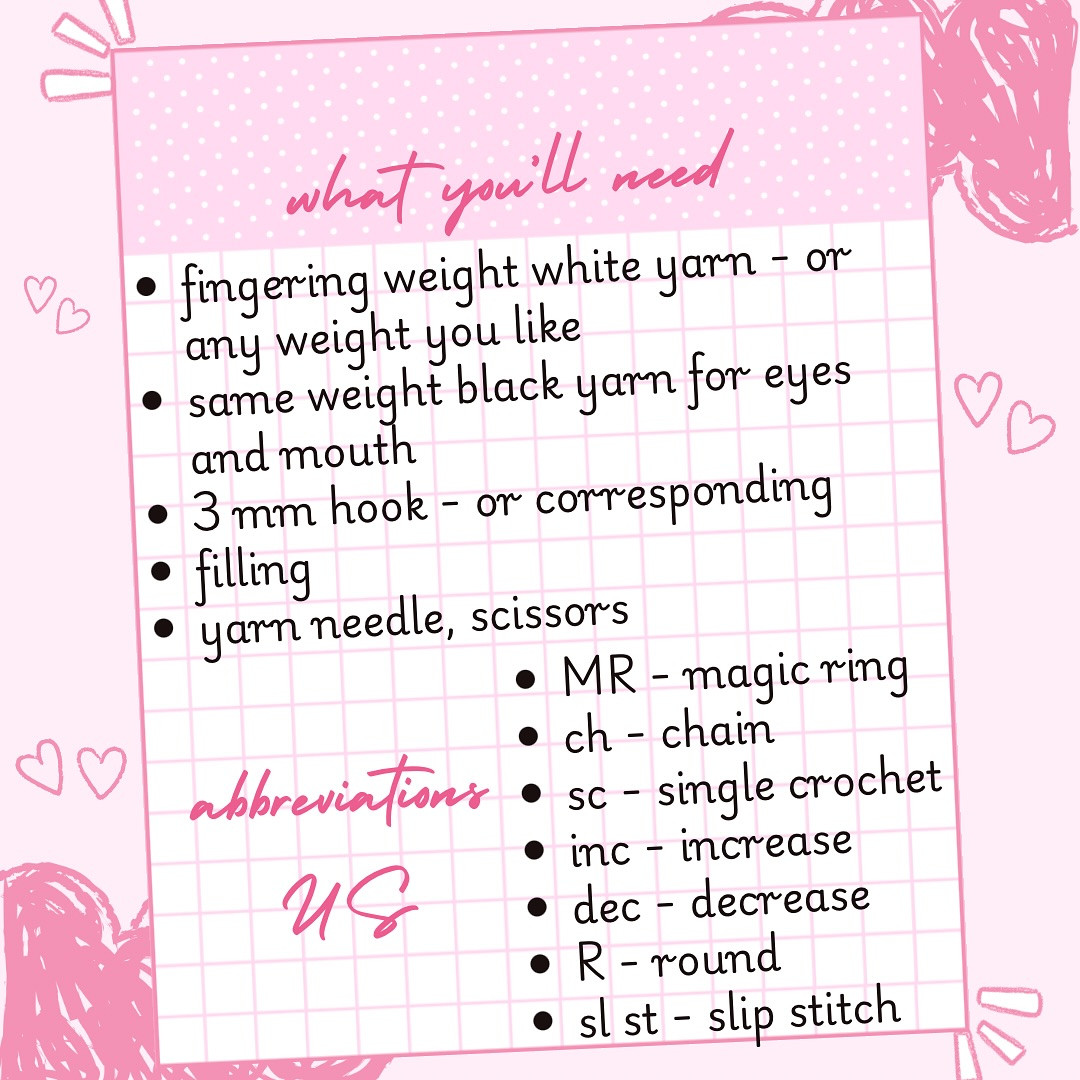 what you'll need
• fingering weight white yarn - or
any weight you like
• same weight black yarn for eyes
and mouth
• 3 mm hook - or corresponding
• filling
• yarn needle, scissors
abbreviations
US
• MR - magic ring
• ch - chain
• sc - single crochet
• inc - increase
• dec - decrease
• R - round
• sl st - slip stitch